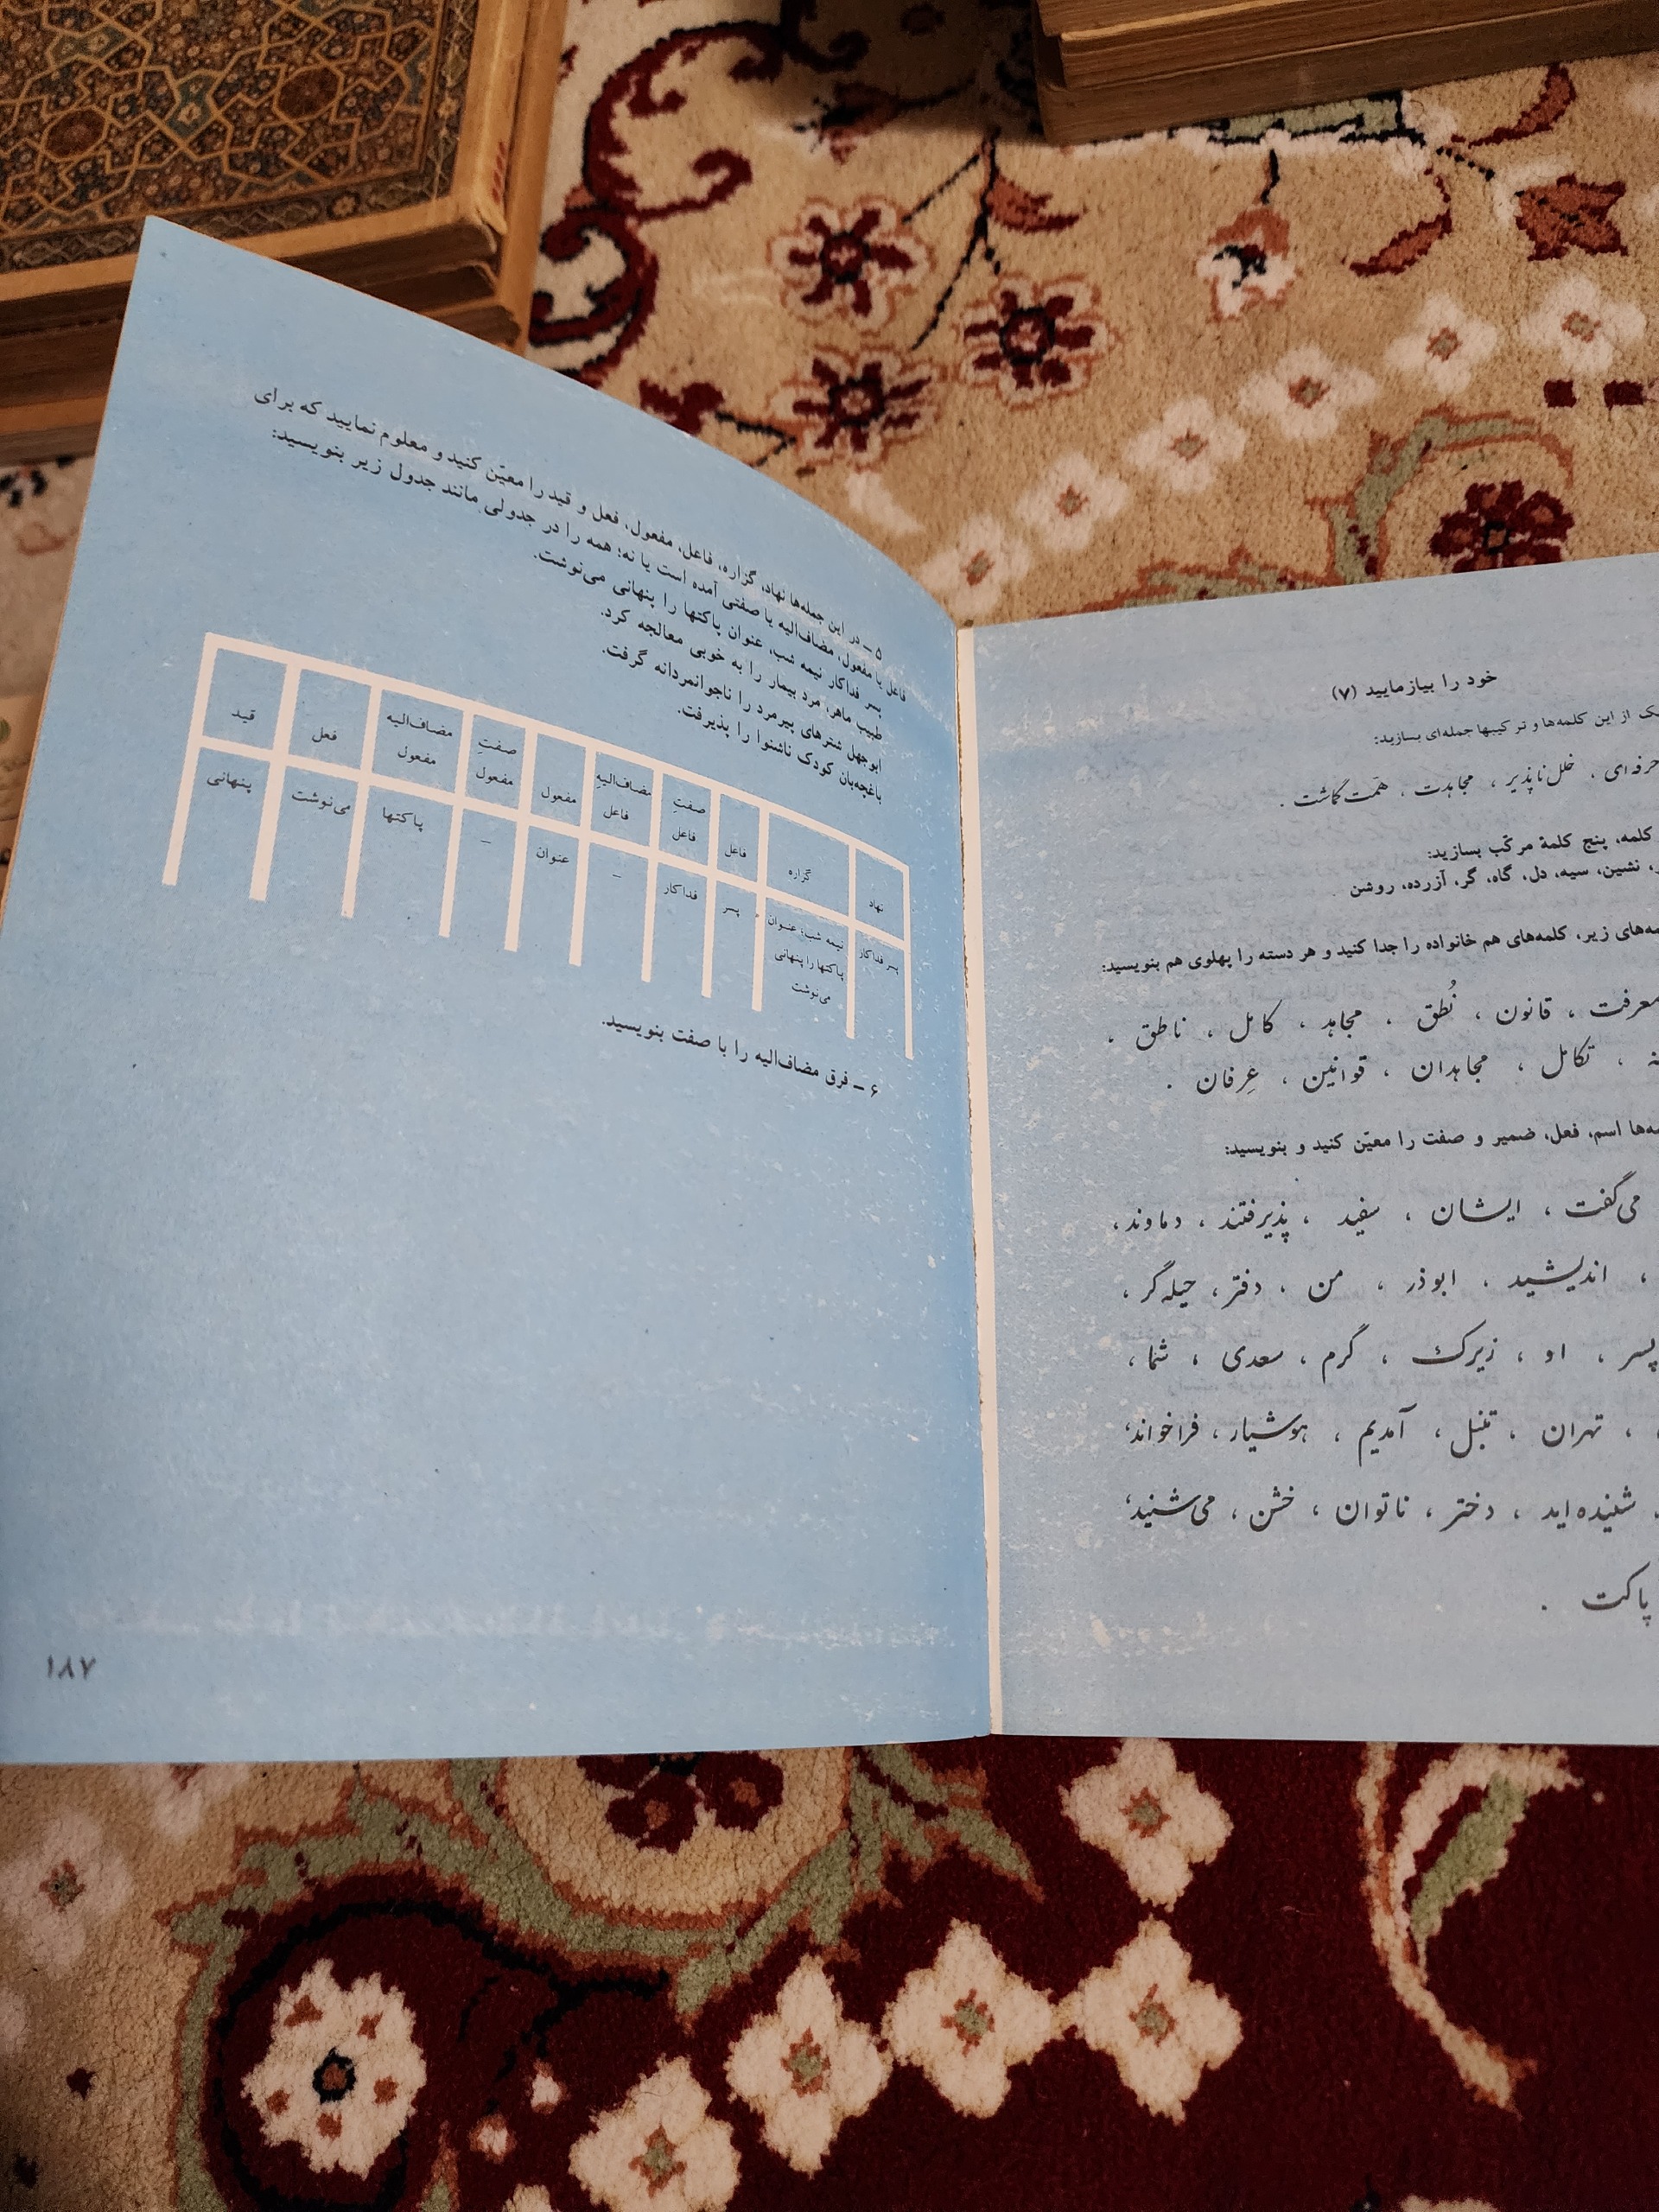 خود را بیازمایید (۷)
یک از این کلمه‌ها و ترکیبها جمله‌ای بسازید:
حرفه‌ای ، خلل ناپذیر ، مجاهدت ، همّت گماشت .
کلمه، پنج کلمهٔ مرکّب بسازید:
نشین، سیه، دل، گاه، گر، آزرده، روشن
زیر، کلمه‌های هم خانواده را جدا کنید و هر دسته را پهلوی هم بنویسید:
معرفت ، قانون ، نُطق ، مجاهد ، کامل ، ناطق ،
، تکامل ، مجاهدان ، قوانین ، عِرفان .
اسم، فعل، ضمیر و صفت را معیّن کنید و بنویسید:
می‌گفت ، ایشان ، سفید ، پذیرفتند ، دماوند،
، اندیشید ، ابوذر ، من ، دفتر ، حیله‌گر ،
پسر ، او ، زیرک ، گرم ، سعدی ، شما ،
، تهران ، تنبل ، آمدیم ، هوشیار ، فراخواند،
شنیده‌اید ، دختر ، ناتوان ، خشن ، می‌شنید،
پاکت .
۵ – در این جمله‌ها نهاد، گزاره، فاعل، مفعول، فعل و قید را معیّن کنید و معلوم نمایید که برای
فاعل یا مفعول، مضاف‌الیه یا صفتی آمده است یا نه؛ همه را در جدولی مانند جدول زیر بنویسید:
پسر فداکار نیمه شب، عنوان پاکتها را پنهانی می‌نوشت.
طبیب ماهر، مرد بیمار را به خوبی معالجه کرد.
ابوجهل شترهای پیرمرد را ناجوانمردانه گرفت.
باغچه‌بان کودک ناشنوا را پذیرفت.
نهاد گزاره فاعل صفتِ فاعل مضاف‌الیهِ فاعل مفعول صفتِ مفعول مضاف‌الیه مفعول فعل قید
پسر فداکار نیمه شب؛ عنوان پاکتها را پنهانی می‌نوشت پسر فداکار – عنوان – پاکتها می‌نوشت پنهانی
۶ – فرق مضاف‌الیه را با صفت بنویسید.
۱۸۷